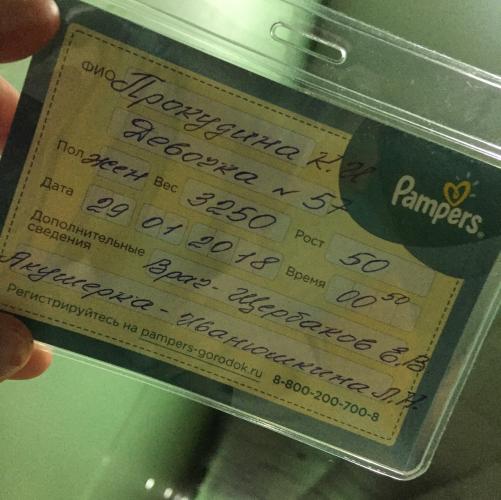 ФИО Прокудина К.И
Девочка № 57
Пол жен Вес 3250 Рост 50
Дата 29 01 2018 Время 00 50
Дополнительные сведения Врач - Щербаков Е,В
Акушерка - Иванюшкина Л.Н.
Регистрируйтесь на pampers-gorodok.ru 8-800-200-700-8
Pampers